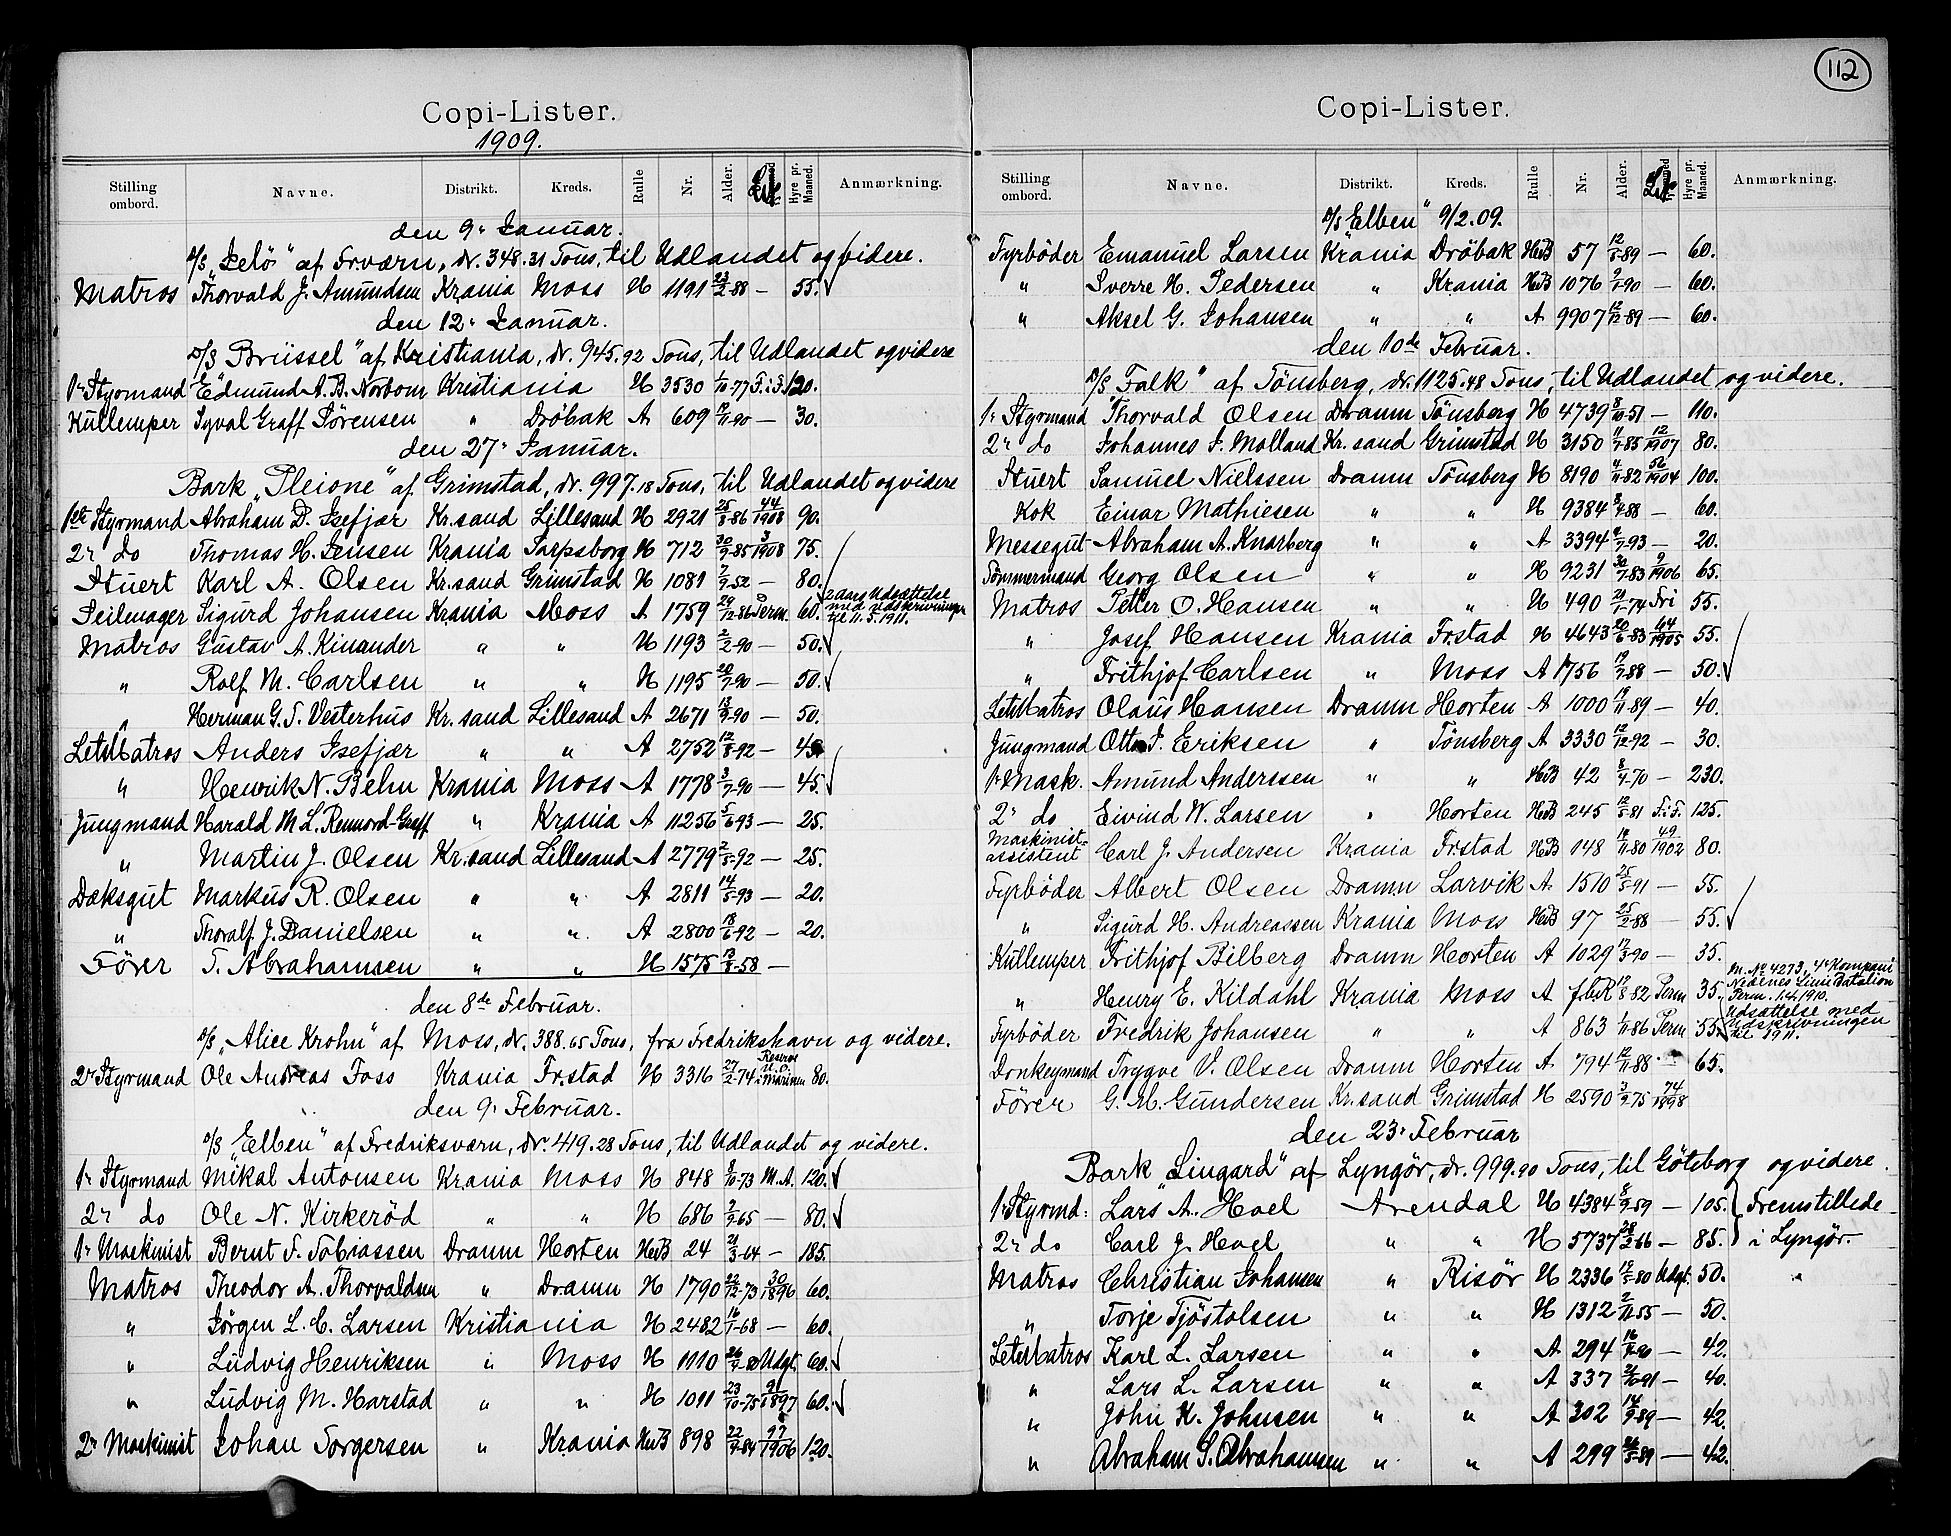 Copi-Lister.
1909.
Stilling ombord. Navne. Distrikt. Kreds. Rulle Nr. Alder. Hyre pr. Maaned. Anmærkning.
den 9. Januar.
D/S „Jelö“ af Fr.værn, dr. 348.31 Tons, til Udlandet og videre.
Matros Thorvald J. Amundsen Krania Moss H 1191 23/2-88 — 55.
den 12. Januar.
D/S Brüssel“ af Kristiania, dr. 945.92 Tons, til Udlandet og videre
1r Styrmand Edmund A. B. Norbom Kristiania H 3530 1/10-77 F.i.S. 120.
Kullemper Syval Graff Sörensen " Dröbak A 609 12/11-90 — 30.
den 27. Januar.
Bark „Pleione“ af Grimstad, dr. 997.18 Tons, til Udlandet og videre
1ste Styrmand Abraham D. Isefjær Kr.sand Lillesand H 2921 25/8-86 44/1908 90.
2r do Thomas H. Jensen Krania Sarpsborg H 712 30/9-85 3/1908 75.
Stuert Karl A. Olsen Kr.sand Grimstad H 1081 7/9-52 — 80.
Seilmager Sigurd Johansen Krania Moss A 1759 29/12-86 Perm. 60. 2 aars udsættelse med udskrivningen til 11.5.1911.
Matros Gustav A. Kinander " " H 1193 2/2-90 — 50.
" Rolf M. Carlsen " " H 1195 20/7-90 — 50.
" Herman G. T. Vesterhus Kr.sand Lillesand A 2671 13/9-90 — 50.
LetMatros Anders Isefjær " " A 2752 12/8-92 — 45
" Henrik N. Behn Krania Moss A 1778 3/7-90 — 45.
Jungmand Harald M. L. Rennord-Graff " Krania A 11256 5/6-93 — 25.
" Martin J. Olsen Kr.sand Lillesand A 2779 2/5-92 — 25.
Dæksgut Markus R. Olsen " " A 2811 14/5-93 — 20.
" Thoralf J. Danielsen " " A 2800 18/6-92 — 20.
Förer T. Abrahamsen " " H 1575 13/8-58 —
den 8de Februar.
D/S „Alice Krohn“ af Moss, dr. 388.65 Tons, fra Fredrikshavn og videre.
2r Styrmand Ole Andreas Foss Krania Fr.stad H 3316 27/2-74 Reserve U.O. i Marinen 80.
den 9. Februar.
D/S „Elben“ af Fredriksværn, dr. 419.28 Tons, til Udlandet og videre.
1r Styrmand Mikal Antonsen Krania Moss H 848 8/10-73 M.A. 120.
2r do Ole N. Kirkeröd " " H 686 2/9-65 — 80.
1r Maskinist Bernt F. Tobiassen Dramn Horten HuB 24 21/3-64 — 185.
Matros Theodor A. Thorvaldsen " Dramn H 1790 22/12-73 30/1896 60.
" Jörgen L. C. Larsen Kristiania H 2482 16/1-68 — 60.
" Ludvig Henriksen " Moss H 1110 26/9-80 Udgt. 60.
" Ludvig M. Harstad " " H 1011 23/10-75 9/1897 60.
2r Maskinist Johan Torgersen " Krania HuB 898 22/9-84 97/1906 120.
112
Copi-Lister.
Stilling ombord. Navne. Distrikt. Kreds. Rulle Nr. Alder. Hyre pr. Maaned. Anmærkning.
D/S „Elben“ 9/2.09.
Fyrböder Emanuel Larsen Krania Dröbak HuB 57 12/5-89 — 60.
" Sverre H. Pedersen " Krania HuB 1076 9/7-90 — 60.
" Aksel G. Johansen " " A 9907 12/12-89 — 60.
den 10de Februar.
D/S „Falk“ af Tönsberg, dr. 1125.48 Tons, til Udlandet og videre.
1r Styrmand Thorvald Olsen Dramn Tönsberg H 4739 8/10-51 — 110.
2r do Johannes J. Molland Kr.sand Grimstad H 3150 11/7-85 12/1907 80.
Stuert Samuel Nielssen Dramn Tönsberg H 8190 4/11-82 52/1904 100.
Kok Einar Mathiesen " " H 9384 8/4-88 — 60.
Messegut Abraham A. Knarberg " " A 3394 2/7-93 — 20.
Tömmermand Georg Olsen " " H 9231 30/7-83 9/1906 65.
Matros Peter O. Hansen " " H 490 21/1-74 Fri 55.
" Josef Hansen Krania Fr.stad H 4643 20/6-83 64/1905 55.
" Frithjof Carlsen " Moss A 1756 19/7-88 — 50.
LetMatros Olaus Hansen Dramn Horten A 1000 19/11-89 — 40.
Jungmand Otto J. Eriksen " Tönsberg A 3330 12/12-92 — 30.
1r Mask. Amund Anderssen " " HuB 42 8/4-70 — 230.
2r do Eivind W. Larsen " Horten HuB 245 12/5-81 F.i.F. 125.
Maskinist-assistent Carl J. Andersen Krania Fr.stad HuB 148 18/11-80 49/1902 80.
Fyrböder Albert Olsen Dramn Larvik A 1510 25/5-91 — 55.
" Sigurd H. Andreassen Krania Moss HuB 97 25/2-88 — 55.
Kullemper Frithjof Bilberg Dramn Horten A 1029 17/3-90 — 35.
" Henry E. Kildahl Krania Moss A f.b.R 17/8-82 Perm 35. M. No 4273, 4r Kompani Nedenes Linie Batalion Perm. 1.4.1910.
Fyrböder Fredrik Johansen " " A 863 1/11-86 Perm 55. Udsættelse med Udskrivningen til 1911.
Donkeymand Trygve V. Olsen Dramn Horten A 794 12/11-88 — 65.
Förer G. M. Gundersen Kr.sand Grimstad H 2590 3/9-75 74/1898
den 23. Februar
Bark „Lingard“ af Lyngör, dr. 999.90 Tons, til Göteborg og videre.
1r Styrmd: Lars A. Hoel Arendal H 4384 8/9-59 — 105. Fremstillede
2r do Carl J. Hoel " " H 5737 28/2-66 — 85. i Lyngör.
Matros Christian Johansen " Risör H 2336 19/5-80 Udgt. 50. "
" Torje Tjöstolsen " " H 1312 2/11-55 — 50.
LetMatros Karl L. Larsen " " A 294 16/7-90 — 42.
" Lars L. Larsen " " A 337 21/10-91 — 40.
" John K. Johnsen " " A 302 14/9-89 — 42.
" Abraham S. Abrahamsen " " A 299 26/5-89 — 42.